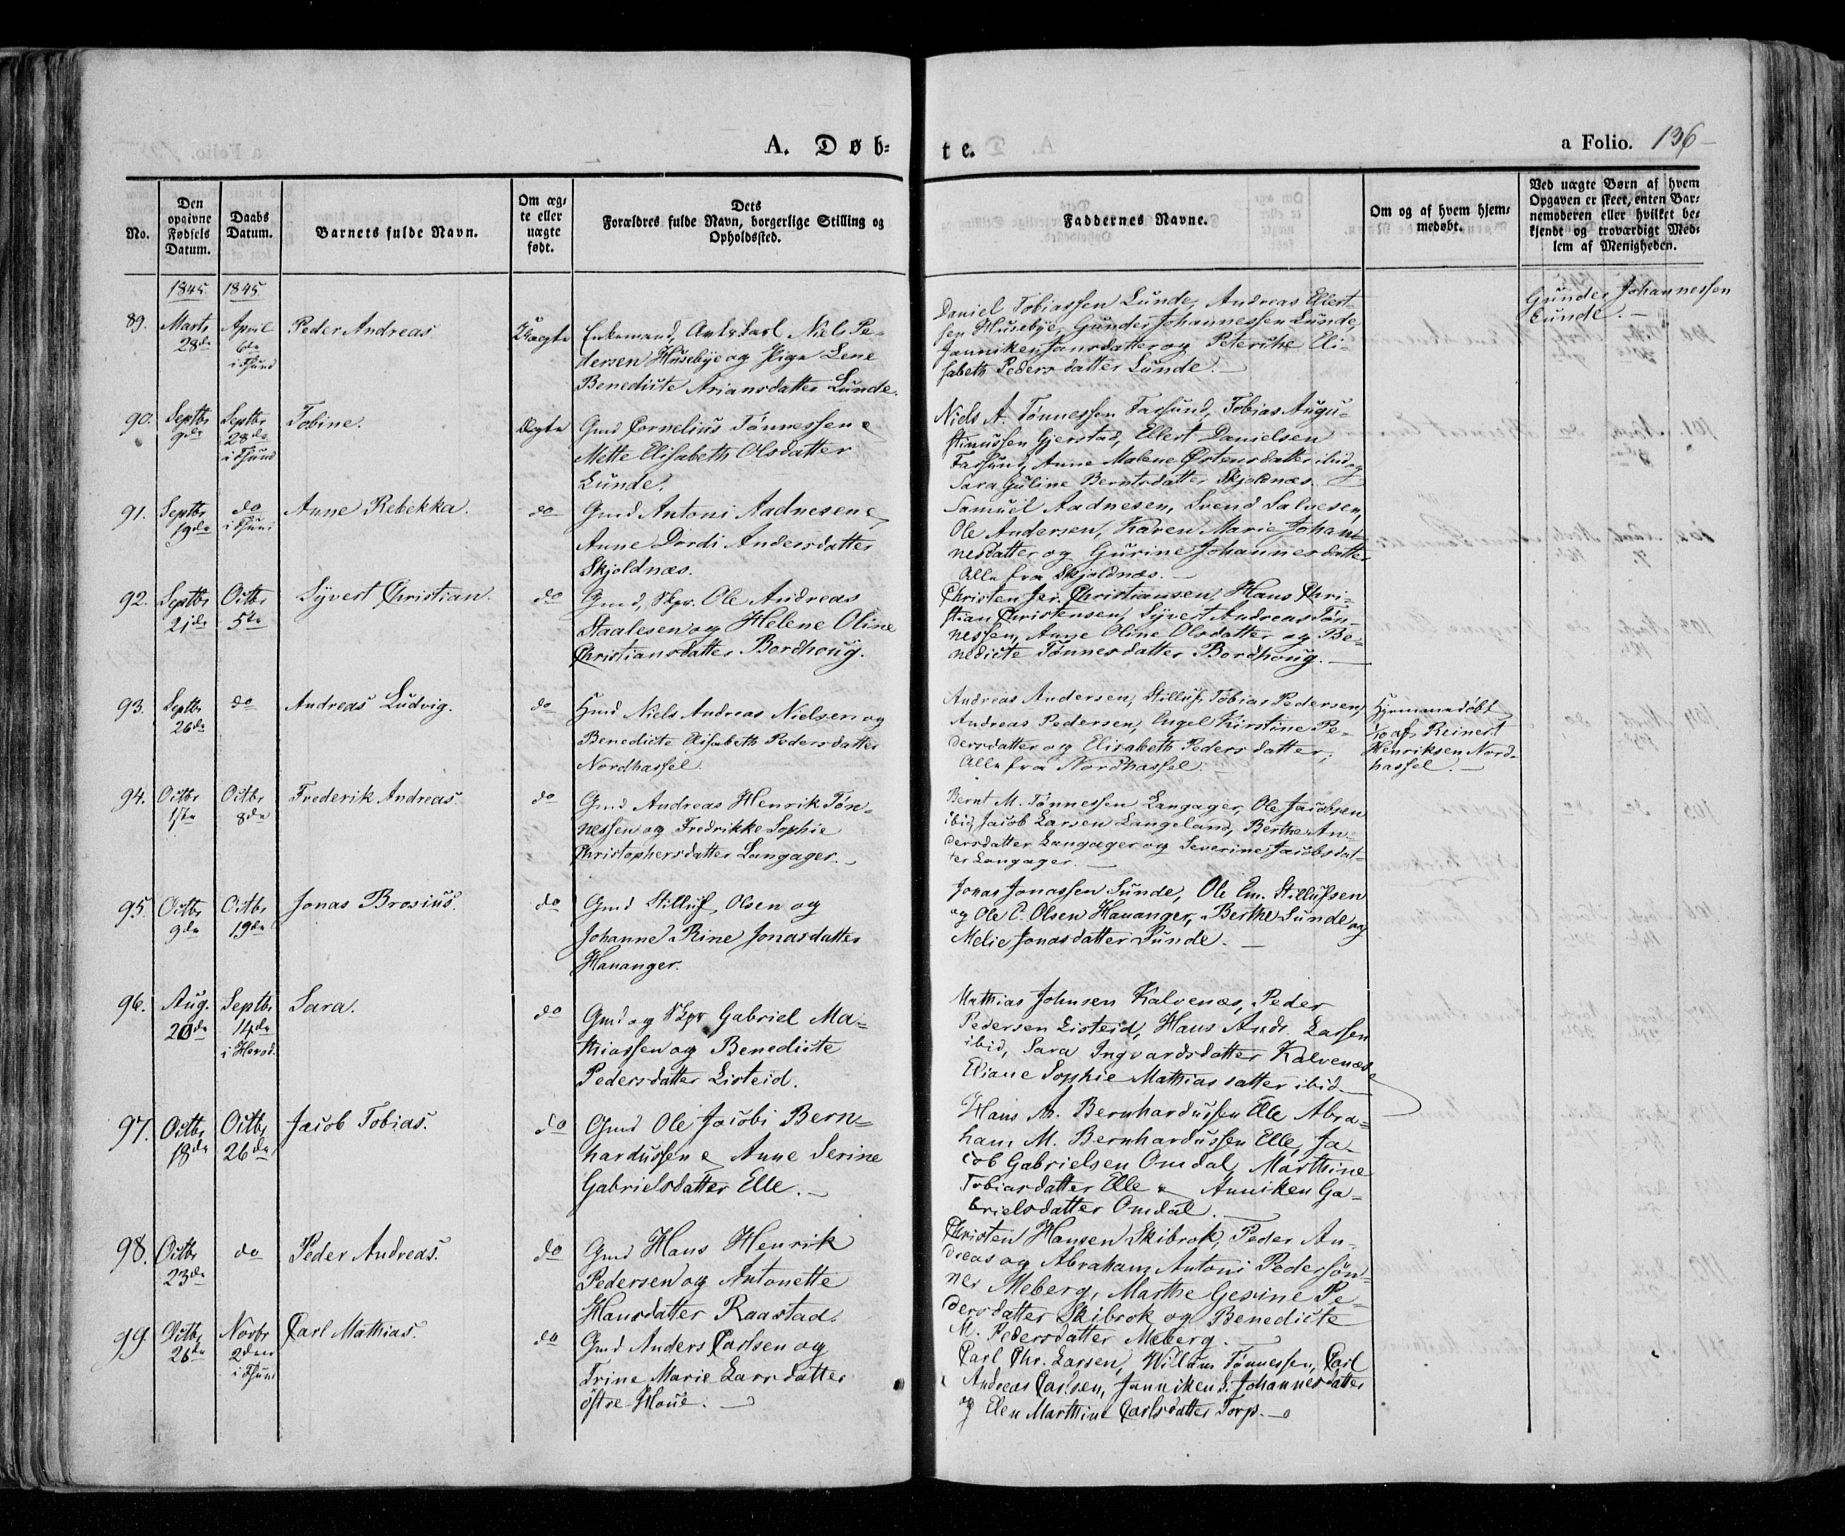 A. Døb-
te.
a Folio. 136
No.
Den
opgivne
Fødsels
Datum.
Daabs
Datum.
Barnets fulde Navn.
Om æg-
te eller
uægte
født.
Dets
Forældres fulde Navn, borgerlige Stilling og
Opholdssted.
Faddernes Navne.
Om og af hvem hjem-
medøbt.
Ved uægte Børn af hvem
Opgaven er skeet, enten Bar-
nemoderen eller hvilket be-
kjendt og troværdigt Med-
lem af Menigheden.
1845. 1845.
89.
Marts
28de
April
6te
i Fsund
Peder Andreas.
Uægte
Enkemand, Niel Pe-
dersen Husebye og Pige Lene
Benedicte Ariansdatter Lunde.
Daniel Tobiassen Lunde, Andreas Ellert-
sen Husebye, Gunder Johannessen Lunde,
Janniken Jansdatter og Peterike Eli-
sabeth Pedersdatter Lunde.
Gunder Johannessen
Lunde.
90.
Septbr
9de
Septbr
28de
i Fsund
Tobine.
Ægte
Gmd Cornelius Tønnessen &
Mette Elisabeth Olsdatter
Lunde.
Niels A. Tønnessen Farsund, Tobias Augu-
stinussen Gjerstad, Ellert Danielsen
Farsund, Anne Malene Østensdatter ibid og
Sara Guline Berntsdatter Skjoldnæs.
91.
Septbr
19de
do
i Fsund
Anne Rebekka.
do
Gmd Antoni Aadnesen &
Anne Dordi Andersdatter
Skjoldnæs.
Samuel Aadnesen, Svend Salvesen,
Ole Andersen, Karen Marie Johan-
nesdatter og Gurine Johannesdatter
Alle fra Skjoldnæs.
92.
Septbr
21de
Octbr
5te
Syvert Christian.
do
Gmd, Skpr. Ole Andreas
Staalesen og Helene Oline
Christiansdatter Bordhoug.
Christen Jei. Christiansen, Hans Chri-
stian Christensen, Syvert Andreas Tøn-
nessen, Anne Oline Olsdatter og Be-
nedicte Tønnesdatter Bordhoug.
93.
Septbr
26de
do
Andreas Ludvig.
do
Hmd Niels Andreas Nielsen og
Benedicte Elisabeth Pedersdatter
Nordhassel.
Andreas Andersen, Stilluf Tobias Pedersen,
Andreas Pedersen, Engel Kirstine Pe-
dersdatter og Elisabeth Pedersdatter,
Alle fra Nordhassel.
Hjemmedøbt
af Reinert
Henriksen Nord-
hassel.
94.
Octbr
1ste
Octbr
8de
Frederik Andreas.
do
Gmd Andreas Henrik Tøn-
nessen og Fredrikke Sophie
Christophersdatter Langager.
Bernt M. Tønnessen Langager, Ole Jacobsen
ibid, Jacob Larsen Langeland, Berthe An-
dersdatter Langager og Severine Jacobsdat-
ter Langager.
95.
Octbr
9de
Octbr
19de
Jonas Brosius.
do
Gmd Stilluf Olsen og
Johanne Rine Jonasdatter
Hananger.
Jonas Jonassen Sunde, Ole Em. Stillufsen
og Ole C. Olsen Hananger, Berthe Sunde og
Melie Jonasdatter Sunde.
96.
Aug.
20de
Septbr
14de
i Hersd.
Sara.
do
Gmd og Skpr Gabriel Ma-
thiassen og Benedicte
Pedersdatter Listeid.
Mathias Johnsen Kalvenæs, Peder
Pedersen Listeid, Hans Andr. Larsen
ibid, Sara Ingvardsdatter Kalvenæs &
Eliane Sophie Mathiasdatter ibid
97.
Octbr
18de
Octbr
26de
Jacob Tobias.
do
Gmd Ole Jacobi Bern-
hardussen & Anne Serine
Gabrielsdatter Elle.
Hans M. Bernhardussen Elle, Abra-
ham M. Bernhardussen Elle, Ja-
cob Gabrielsen Omdal, Marthine
Tobiasdatter Elle & Anniken Ga-
brielsdatter Omdal.
98.
Octbr
23de
do
Peder Andreas.
do
Gmd Hans Henrik
Pedersen og Antonette
Hansdatter Raastad.
Christen Hansen Skibrok, Peder An-
dreas og Abraham Antoni Pedersøn-
ner Meberg, Marthe Gesine Pe-
dersdatter Skibrok og Benedicte
M. Pedersdatter Meberg.
99.
Octbr
26de
Novbr
2den
i Fsund
Carl Mathias.
do
Gmd Anders Carlsen og
Trine Marie Larsdatter
østre Houe.
Carl Chr. Larsen, Willum Tønnessen, Carl
Andreas Carlsen, Janniken S. Johannesdatter
og Elen Marthine Carlsdatter Torp.